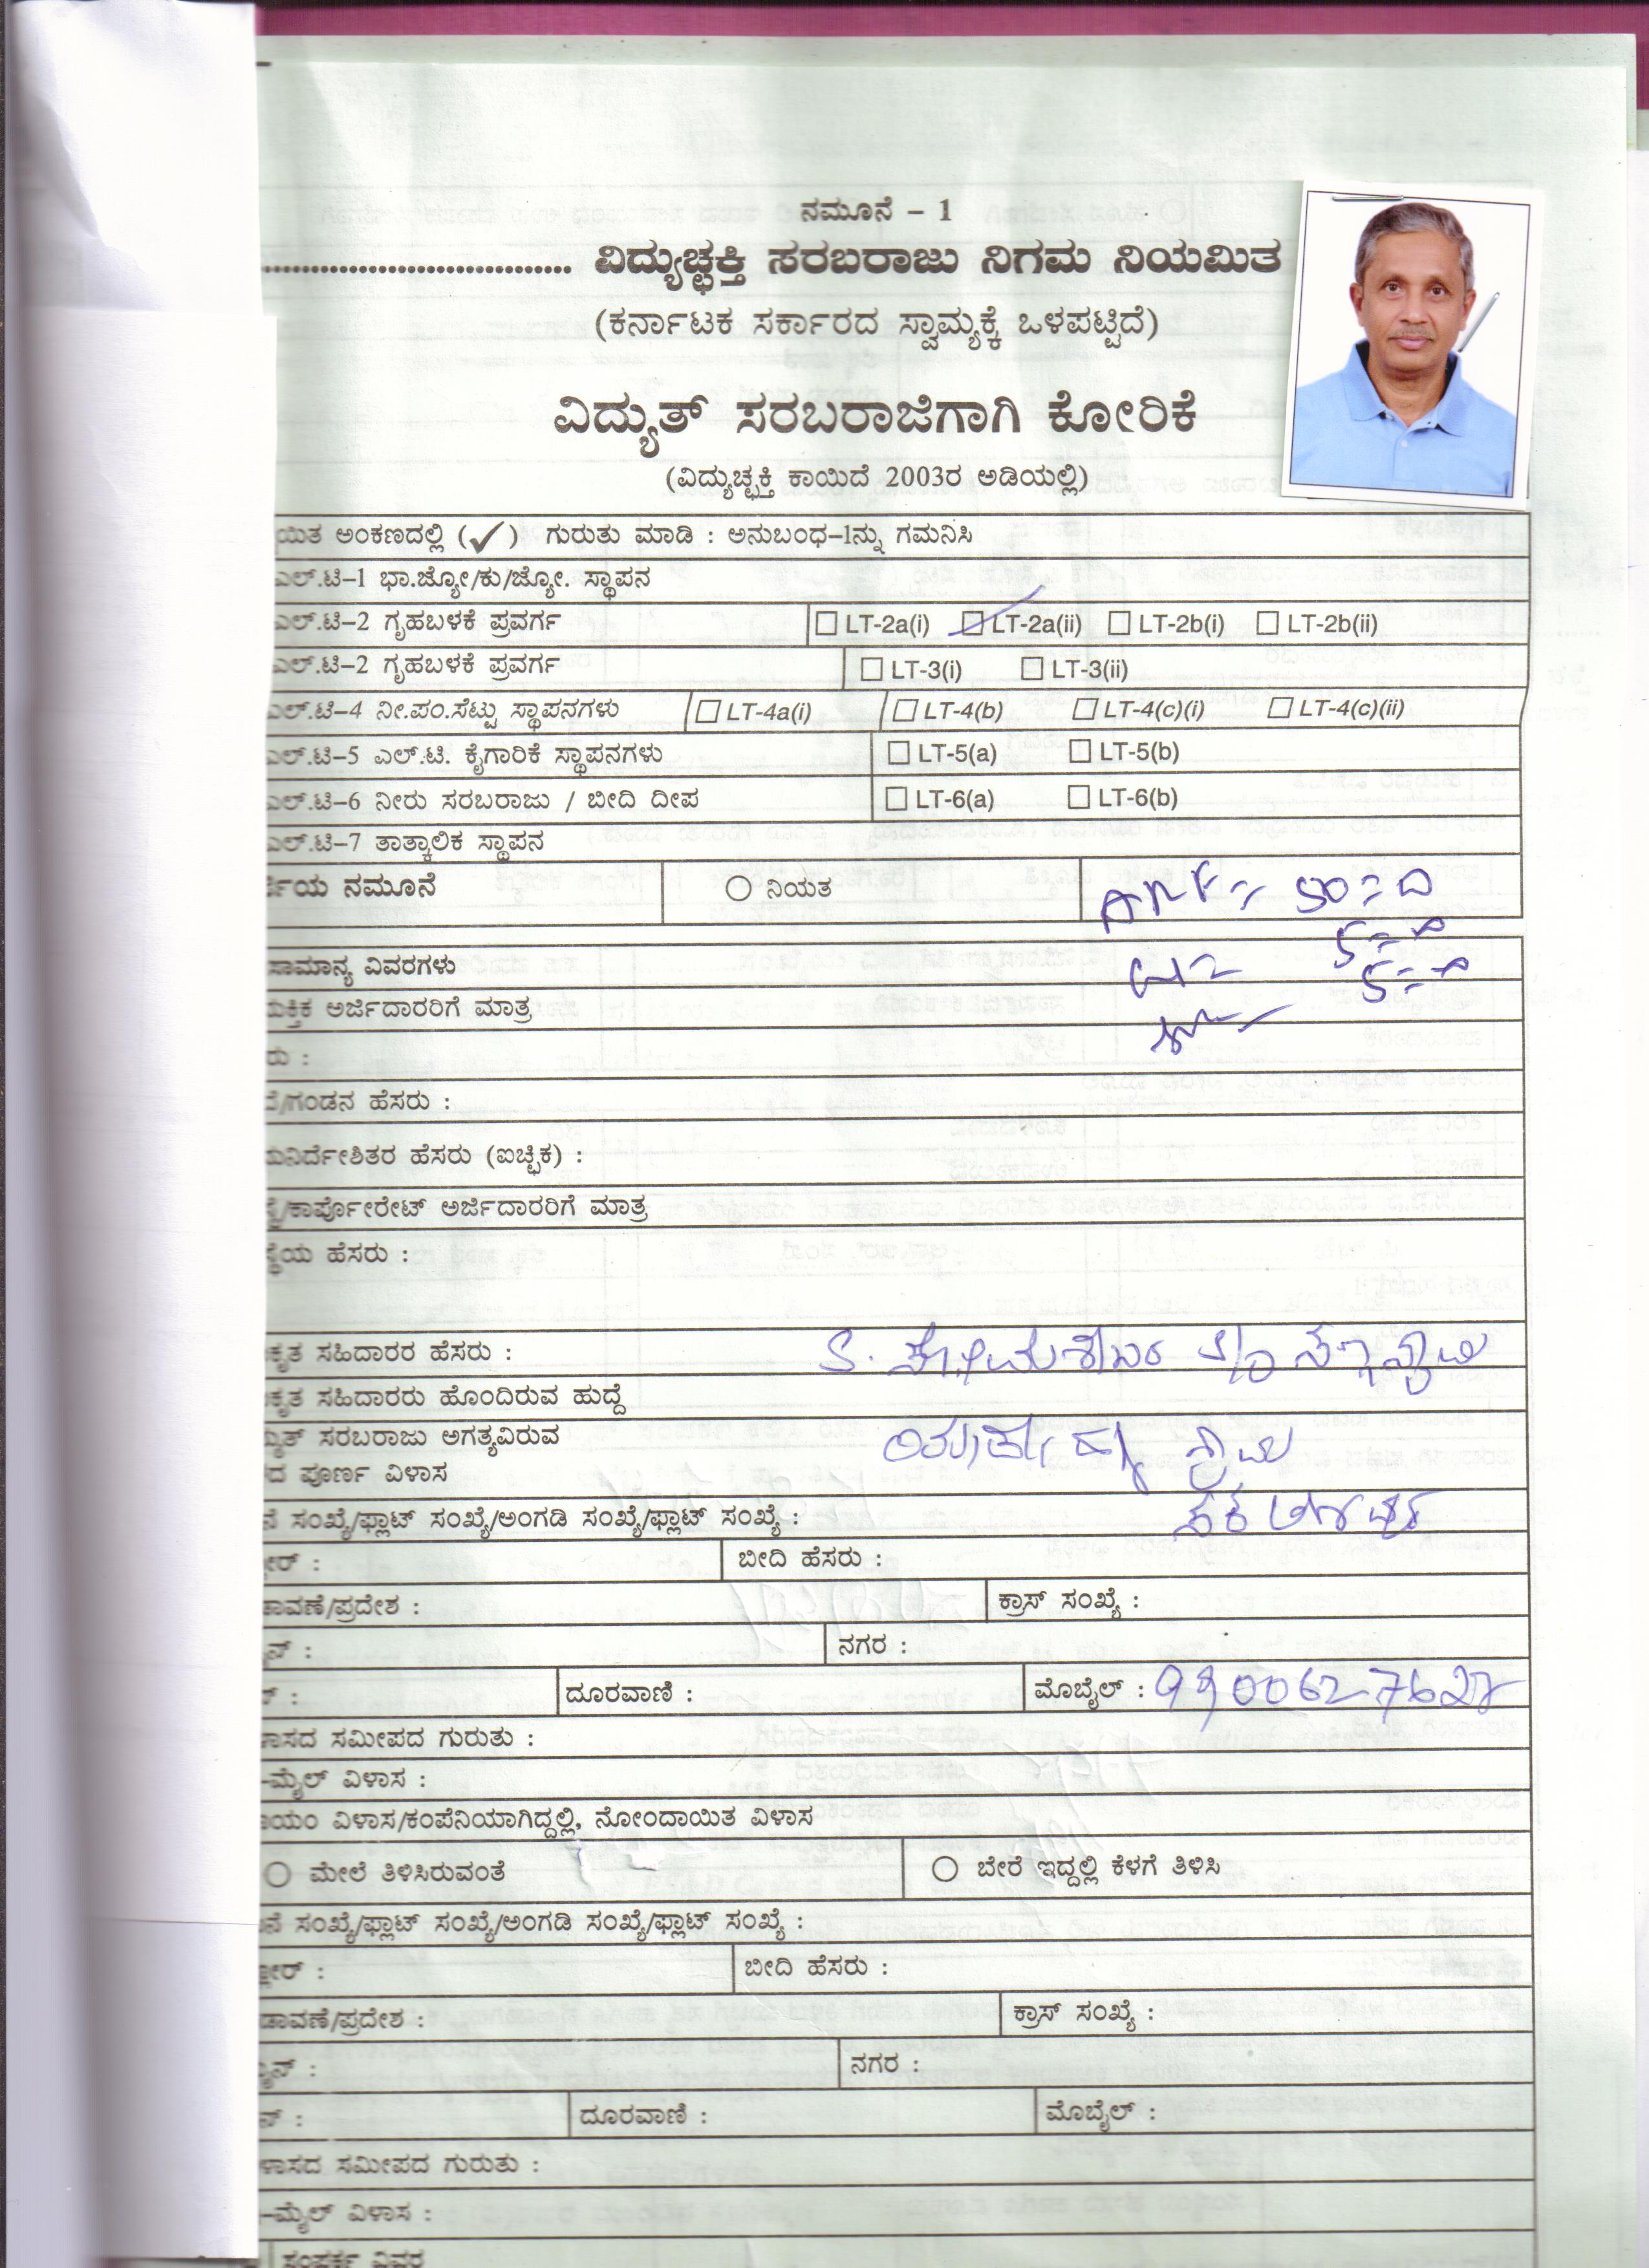 ನಮೂನೆ – 1
................................ ವಿದ್ಯುಚ್ಛಕ್ತಿ ಸರಬರಾಜು ನಿಗಮ ನಿಯಮಿತ
(ಕರ್ನಾಟಕ ಸರ್ಕಾರದ ಸ್ವಾಮ್ಯಕ್ಕೆ ಒಳಪಟ್ಟಿದೆ)
ವಿದ್ಯುತ್ ಸರಬರಾಜಿಗಾಗಿ ಕೋರಿಕೆ
(ವಿದ್ಯುಚ್ಛಕ್ತಿ ಕಾಯಿದೆ 2003ರ ಅಡಿಯಲ್ಲಿ)
ಯಿತ ಅಂಕಣದಲ್ಲಿ (✓) ಗುರುತು ಮಾಡಿ : ಅನುಬಂಧ–1ನ್ನು ಗಮನಿಸಿ
ಎಲ್.ಟಿ–1 ಭಾ.ಜ್ಯೋ/ಕು/ಜ್ಯೋ. ಸ್ಥಾಪನ
ಎಲ್.ಟಿ–2 ಗೃಹಬಳಕೆ ಪ್ರವರ್ಗ LT-2a(i) LT-2a(ii) LT-2b(i) LT-2b(ii)
ಎಲ್.ಟಿ–2 ಗೃಹಬಳಕೆ ಪ್ರವರ್ಗ LT-3(i) LT-3(ii)
ಎಲ್.ಟಿ–4 ನೀ.ಪಂ.ಸೆಟ್ಟು ಸ್ಥಾಪನಗಳು LT-4a(i) LT-4(b) LT-4(c)(i) LT-4(c)(ii)
ಎಲ್.ಟಿ–5 ಎಲ್.ಟಿ. ಕೈಗಾರಿಕೆ ಸ್ಥಾಪನಗಳು LT-5(a) LT-5(b)
ಎಲ್.ಟಿ–6 ನೀರು ಸರಬರಾಜು / ಬೀದಿ ದೀಪ LT-6(a) LT-6(b)
ಎಲ್.ಟಿ–7 ತಾತ್ಕಾಲಿಕ ಸ್ಥಾಪನ
ರ್ಜಿಯ ನಮೂನೆ ನಿಯತ
ಸಾಮಾನ್ಯ ವಿವರಗಳು
ಯಕ್ತಿಕ ಅರ್ಜಿದಾರರಿಗೆ ಮಾತ್ರ
ರು :
ದೆ/ಗಂಡನ ಹೆಸರು :
ಮನಿರ್ದೇಶಿತರ ಹೆಸರು (ಐಚ್ಛಿಕ) :
ಸ್ಥೆ/ಕಾರ್ಪೋರೇಟ್ ಅರ್ಜಿದಾರರಿಗೆ ಮಾತ್ರ
ಸ್ಥೆಯ ಹೆಸರು :
ಕೃತ ಸಹಿದಾರರ ಹೆಸರು :
ಕೃತ ಸಹಿದಾರರು ಹೊಂದಿರುವ ಹುದ್ದೆ
ದ್ಯುತ್ ಸರಬರಾಜು ಅಗತ್ಯವಿರುವ
ದ ಪೂರ್ಣ ವಿಳಾಸ
ನೆ ಸಂಖ್ಯೆ/ಫ್ಲಾಟ್ ಸಂಖ್ಯೆ/ಅಂಗಡಿ ಸಂಖ್ಯೆ/ಫ್ಲಾಟ್ ಸಂಖ್ಯೆ :
ೋರ್ : ಬೀದಿ ಹೆಸರು :
ಡಾವಣೆ/ಪ್ರದೇಶ : ಕ್ರಾಸ್ ಸಂಖ್ಯೆ :
ನ್ : ನಗರ :
ದೂರವಾಣಿ : ಮೊಬೈಲ್ :
ಳಾಸದ ಸಮೀಪದ ಗುರುತು :
–ಮೈಲ್ ವಿಳಾಸ :
ಾಯಂ ವಿಳಾಸ/ಕಂಪೆನಿಯಾಗಿದ್ದಲ್ಲಿ, ನೋಂದಾಯಿತ ವಿಳಾಸ
ಮೇಲೆ ತಿಳಿಸಿರುವಂತೆ ಬೇರೆ ಇದ್ದಲ್ಲಿ ಕೆಳಗೆ ತಿಳಿಸಿ
ನೆ ಸಂಖ್ಯೆ/ಫ್ಲಾಟ್ ಸಂಖ್ಯೆ/ಅಂಗಡಿ ಸಂಖ್ಯೆ/ಫ್ಲಾಟ್ ಸಂಖ್ಯೆ :
ೋರ್ : ಬೀದಿ ಹೆಸರು :
ಡಾವಣೆ/ಪ್ರದೇಶ : ಕ್ರಾಸ್ ಸಂಖ್ಯೆ :
ನ್ : ನಗರ :
ನ್ : ದೂರವಾಣಿ : ಮೊಬೈಲ್ :
ಳಾಸದ ಸಮೀಪದ ಗುರುತು :
–ಮೈಲ್ ವಿಳಾಸ :
ಸಂಪರ್ಕ ವಿವರ